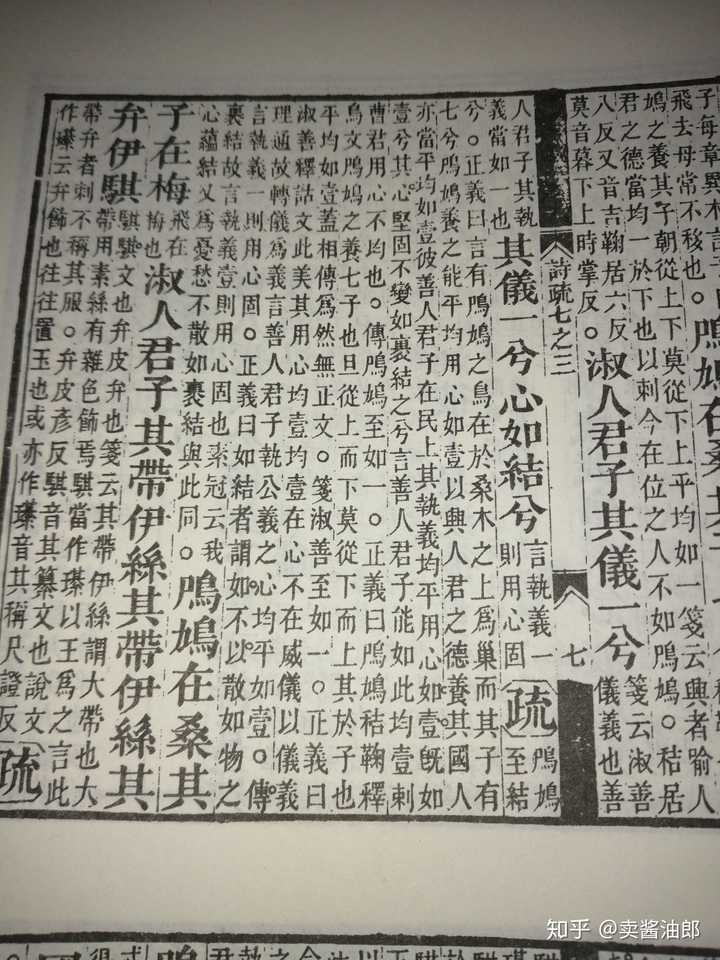 子每章異木言子
飛去母常不移也。鳲鳩在桑其
鳩之養其子朝從上下莫從下上平均如一箋云興者喻人
君之德當均一於下也以刺今在位之人不如鳲鳩。秸居
八反又音吉鞠居六反
莫音暮下上時掌反。淑人君子其儀一兮箋云淑善
儀義也善
詩疏七之三 七
人君子其執
義當如一也其儀一兮心如結兮言執義一
則用心固疏鳲鳩
至結
兮。正義曰言有鳲鳩之鳥在於桑木之上爲巢而其子有
七兮鳲鳩養之能平均用心如壹以興人君之德養其國人
亦當平均如壹彼善人君子在民上其執義均平用心如壹旣如
壹兮其心堅固不變如裹結之兮言善人君子能如此均壹刺
曹君用心不均也。傳鳲鳩至如一。正義曰鳲鳩秸鞠釋
鳥文鳲鳩之養七子也旦從上而下莫從下而上其於子也
平均如壹蓋相傳爲然無正文。箋淑善至如一。正義曰
淑善釋詁文此美其用心均壹均壹在心不在威儀以儀義
理通故轉儀爲義言善人君子執公義之心均平如壹。傳
言執義一則用心固。正義曰如結者謂如不以散如物之
裹結故言執義壹則用心固也素冠云我
心蘊結乂爲憂愁不散如裹結與此同。鳲鳩在桑其
子在梅飛在
梅也淑人君子其帶伊絲其帶伊絲其
弁伊騏騏騏文也弁皮弁也箋云其帶伊絲謂大帶也大
帶用素絲有雜色飾焉騏當作璂以王爲之言此
帶弁者刺不稱其服。弁皮彥反騏音其綦文也說文
作璂云弁飾也往往置玉也或亦作璂音其稱尺證反疏
知乎 @卖酱油郎